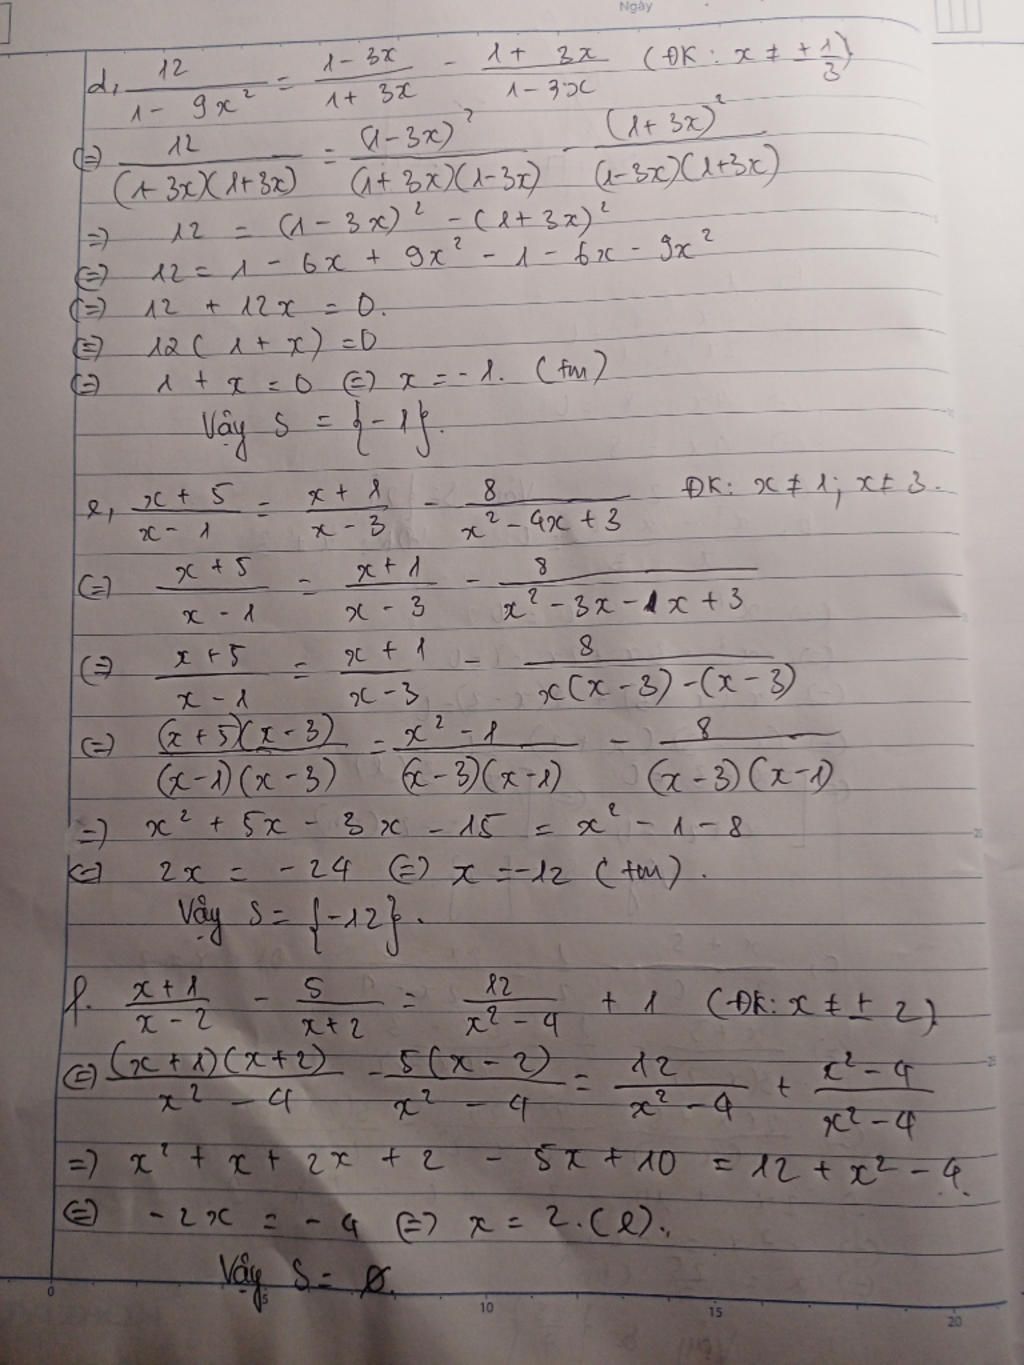 Ngày
d, 12/(1 - 9x²) = (1 - 3x)/(1 + 3x) - (1 + 3x)/(1 - 3x) (ĐK: x ≠ ± 1/3)
(=) 12/((1+3x)(1+3x)) = (1-3x)²/((1+3x)(1-3x)) - (1+3x)²/((1-3x)(1+3x))
=) 12 = (1 - 3x)² - (1 + 3x)²
(=) 12 = 1 - 6x + 9x² - 1 - 6x - 9x²
(=) 12 + 12x = 0.
(=) 12(1 + x) = 0
(=) 1 + x = 0 (=) x = -1. (tm)
Vậy S = {-1}.
e, (x + 5)/(x - 1) = (x + 1)/(x - 3) - 8/(x² - 4x + 3) ĐK: x ≠ 1; x ≠ 3.
(=) (x + 5)/(x - 1) = (x + 1)/(x - 3) - 8/(x² - 3x - 1x + 3)
(=) (x + 5)/(x - 1) = (x + 1)/(x - 3) - 8/(x(x - 3) - (x - 3))
(=) (x + 5)(x - 3)/((x - 1)(x - 3)) = (x² - 1)/((x - 3)(x - 1)) - 8/((x - 3)(x - 1))
=) x² + 5x - 3x - 15 = x² - 1 - 8
(=) 2x = -24 (=) x = -12 (tm).
Vậy S = {-12}.
f. (x + 1)/(x - 2) - 5/(x + 2) = 12/(x² - 4) + 1 (ĐK: x ≠ ± 2)
(=) (x + 1)(x + 2)/(x² - 4) - 5(x - 2)/(x² - 4) = 12/(x² - 4) + (x² - 4)/(x² - 4)
=) x² + x + 2x + 2 - 5x + 10 = 12 + x² - 4.
(=) -2x = -4 (=) x = 2. (l).
Vậy S = ∅.
0 5 10 15 20